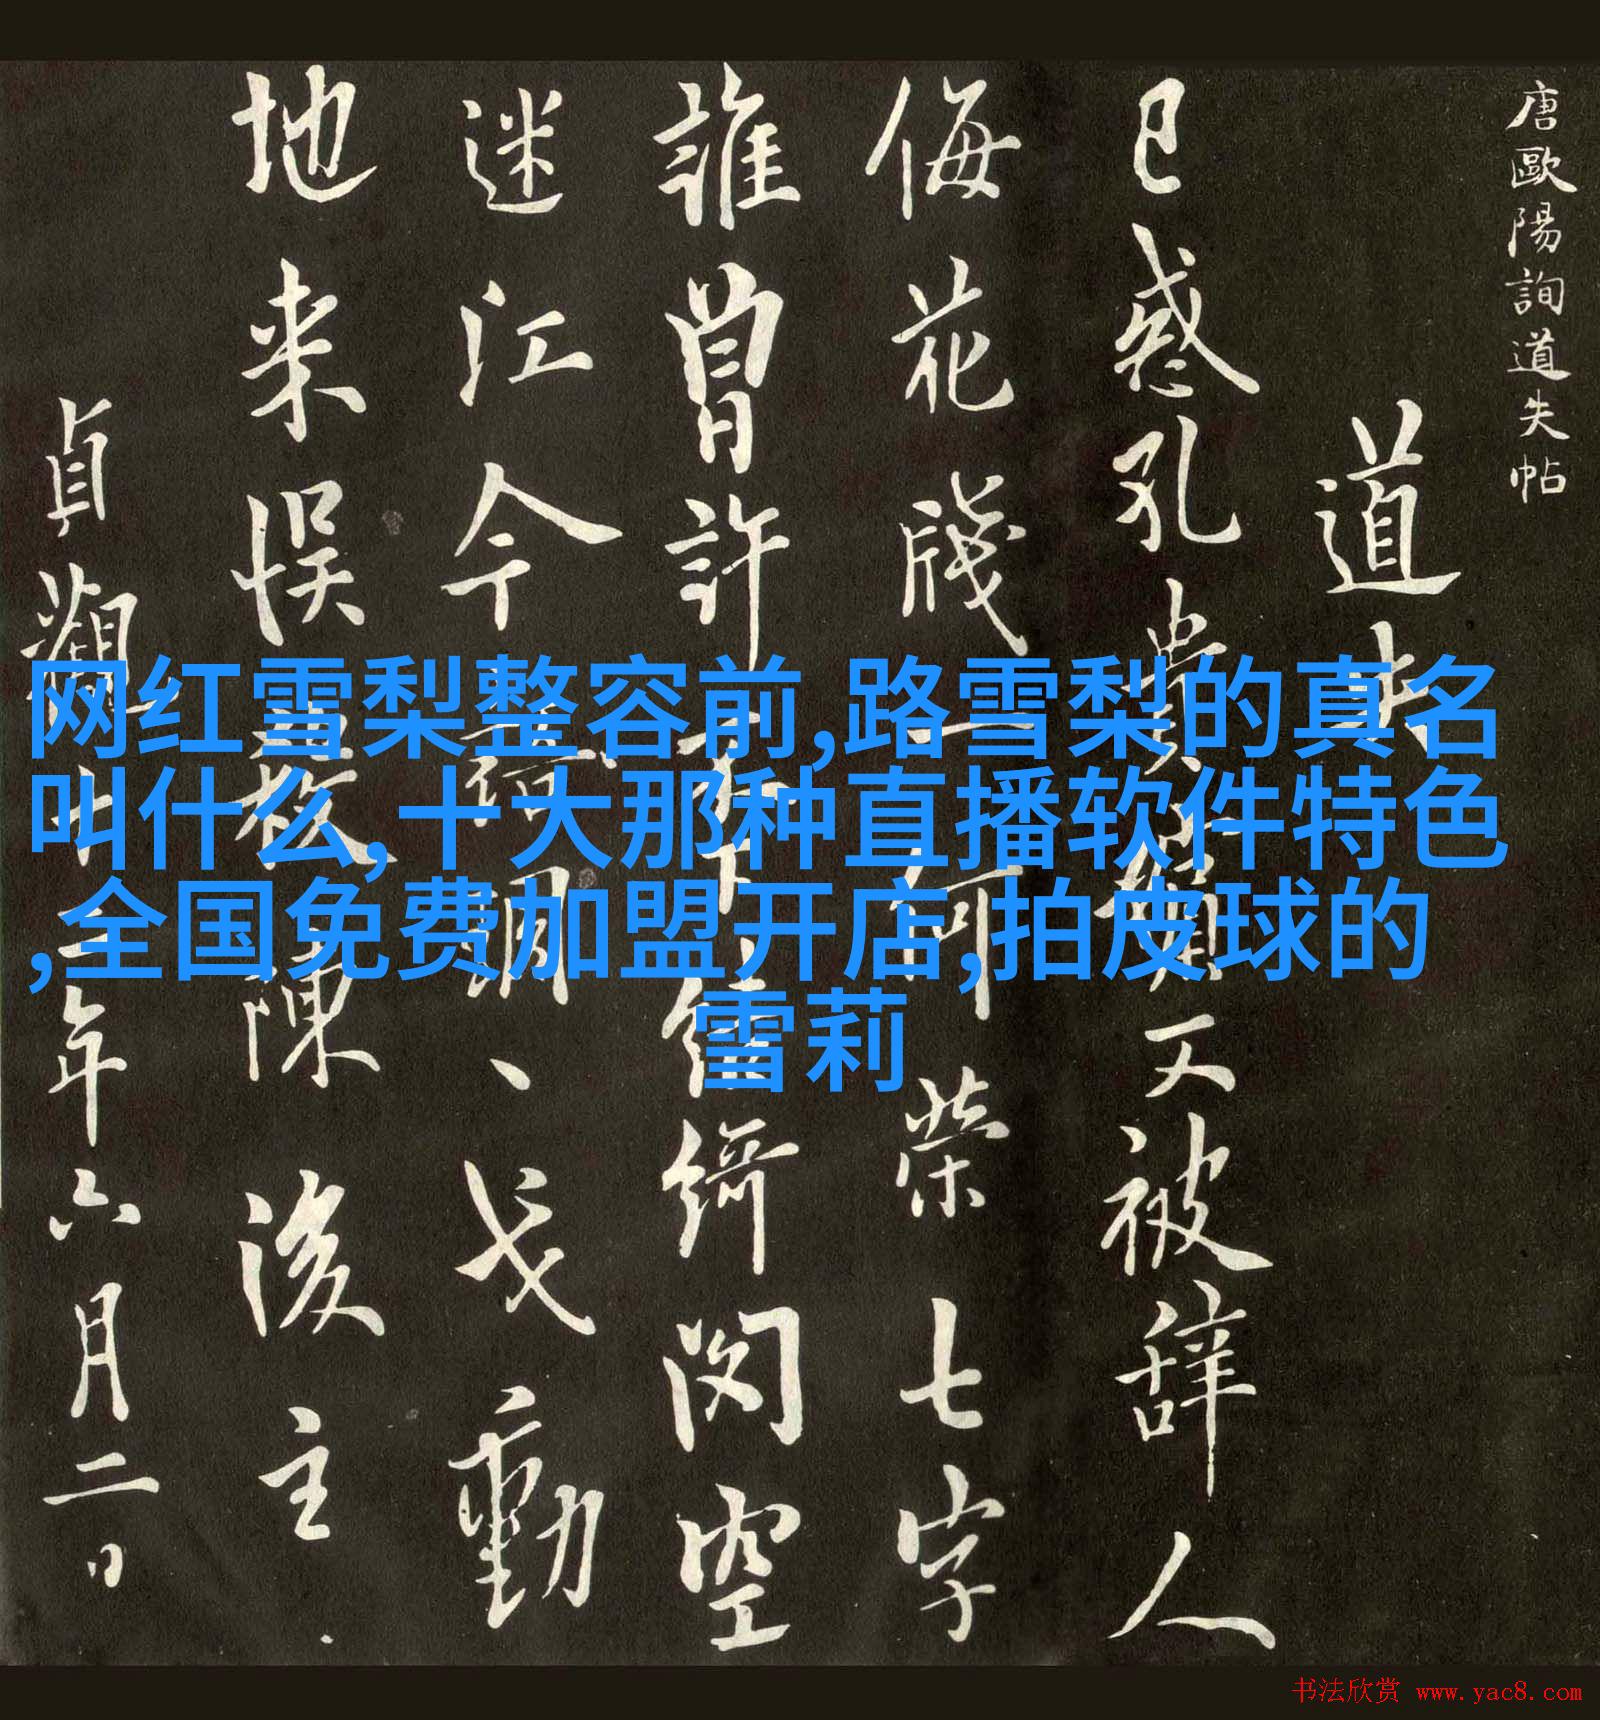 唐歐陽詢道失帖
道失
已惑孔貴嬪又被辭人
侮花牋一何榮七字
誰曾許下綺空
迷江令調、戈動
地来悮陳後主
貞觀十年六月二日
网红雪梨整容前,路雪梨的真名
叫什么, 十大那种直播软件特色
,全国免费加盟开店,拍皮球的
雪莉
书法欣赏 www.yac8.com